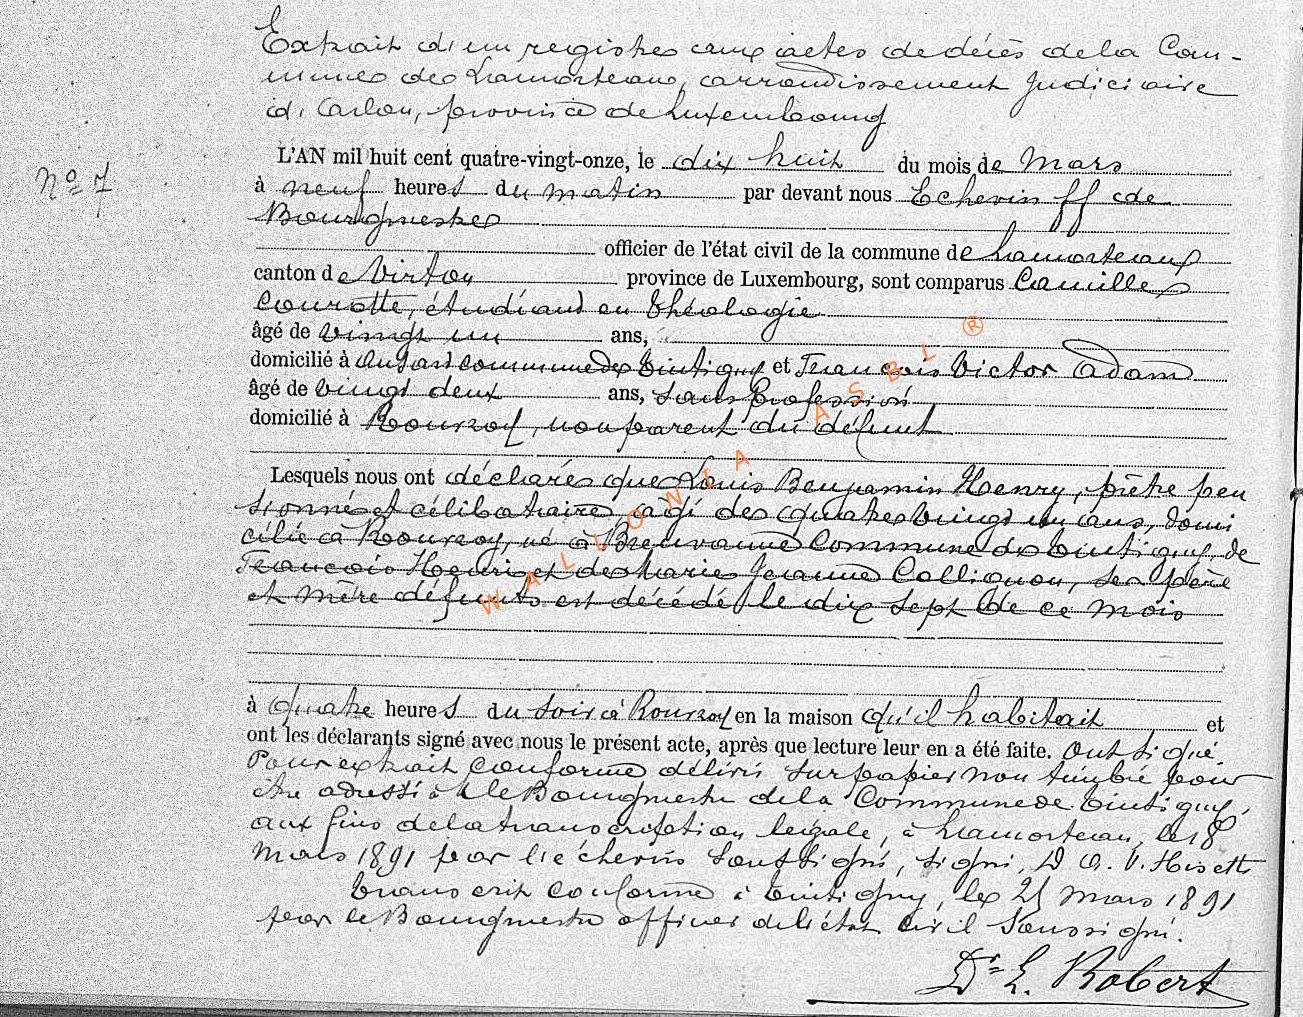 Extrait d'un registre aux actes de décès de la Com-
mune de Lamorteau, arrondissement Judiciaire
d'Arlon, province de Luxembourg
N° 7
L'AN mil huit cent quatre-vingt-onze, le dix huit du mois de Mars
à neuf heures du matin par devant nous Echevin ff de
Bourgmestre
officier de l'état civil de la commune de Lamorteau
canton de Virton province de Luxembourg, sont comparus Camille
Courotte, étudiant en théologie
âgé de vingt un ans,
domicilié à Ansart commune de Tintigny et François Victor Adam
âgé de vingt deux ans, sans profession
domicilié à Rouvroy, non parent du défunt
Lesquels nous ont déclaré que Louis Benjamin Henry, prêtre pen
sionné et célibataire, âgé de quatre vingt un ans, domi
cilié à Rouvroy, né à Breuvanne Commune de Tintigny, de
François Henri et de Marie Jeanne Collignon, ses père
et mère défunts est décédé le dix sept de ce mois
à quatre heures du soir à Rouvroy en la maison qu'il habitait et
ont les déclarants signé avec nous le présent acte, après que lecture leur en a été faite. ont signé.
Pour extrait conforme délivré sur papier non timbré pour
être adressé à le Bourgmestre de la Commune de Tintigny,
aux fins de la transcription légale, à Lamorteau, le 18
Mars 1891 par l'échevin soussigné, signé, D
Transcrit conforme à Tintigny, le 21 Mars 1891
par le Bourgmestre officier de l'état civil soussigné.
Dr E. Robert
WALLONIA ASBL ®